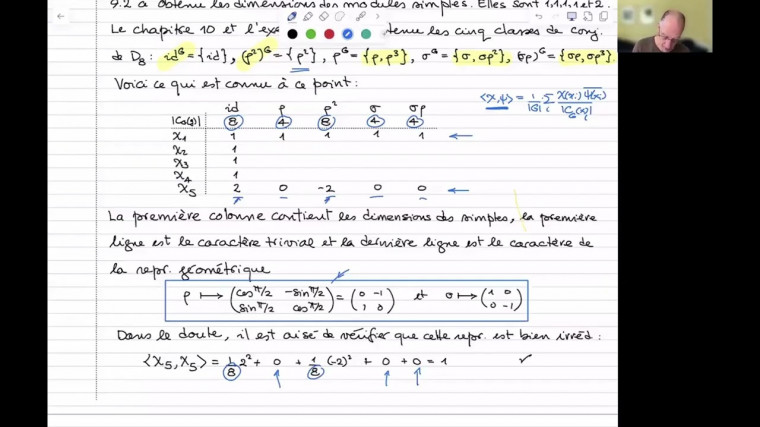 9.2 a obtenu les dimensions des modules simples. Elles sont 1,1,1,1 et 2.
Le chapitre 10 et l'ex les cinq classes de conj.
de D₈ : id^G = {id}, (ρ²)^G = {ρ²}, ρ^G = {ρ, ρ³}, σ^G = {σ, σρ²}, (σρ)^G = {σρ, σρ³}.
Voici ce qui est connu à ce point :
⟨χ,ψ⟩ = 1/|G| Σ
id ρ ρ² σ σρ
|C_G(g)| 8 4 8 4 4
χ₁ 1 1 1 1 1
χ₂ 1
χ₃ 1
χ₄ 1
χ₅ 2 0 -2 0 0
La première colonne contient les dimensions des simples, la première
ligne est le caractère trivial et la dernière ligne est le caractère de
la repr. géométrique
ρ ⟼ (cos π/2 -sin π/2 ; sin π/2 cos π/2) = (0 -1 ; 1 0) et σ ⟼ (1 0 ; 0 -1)
Dans le doute, il est aisé de vérifier que cette repr. est bien irréd :
⟨χ₅, χ₅⟩ = 1/8 2² + 0 + 1/8 (-2)² + 0 + 0 = 1 ✓